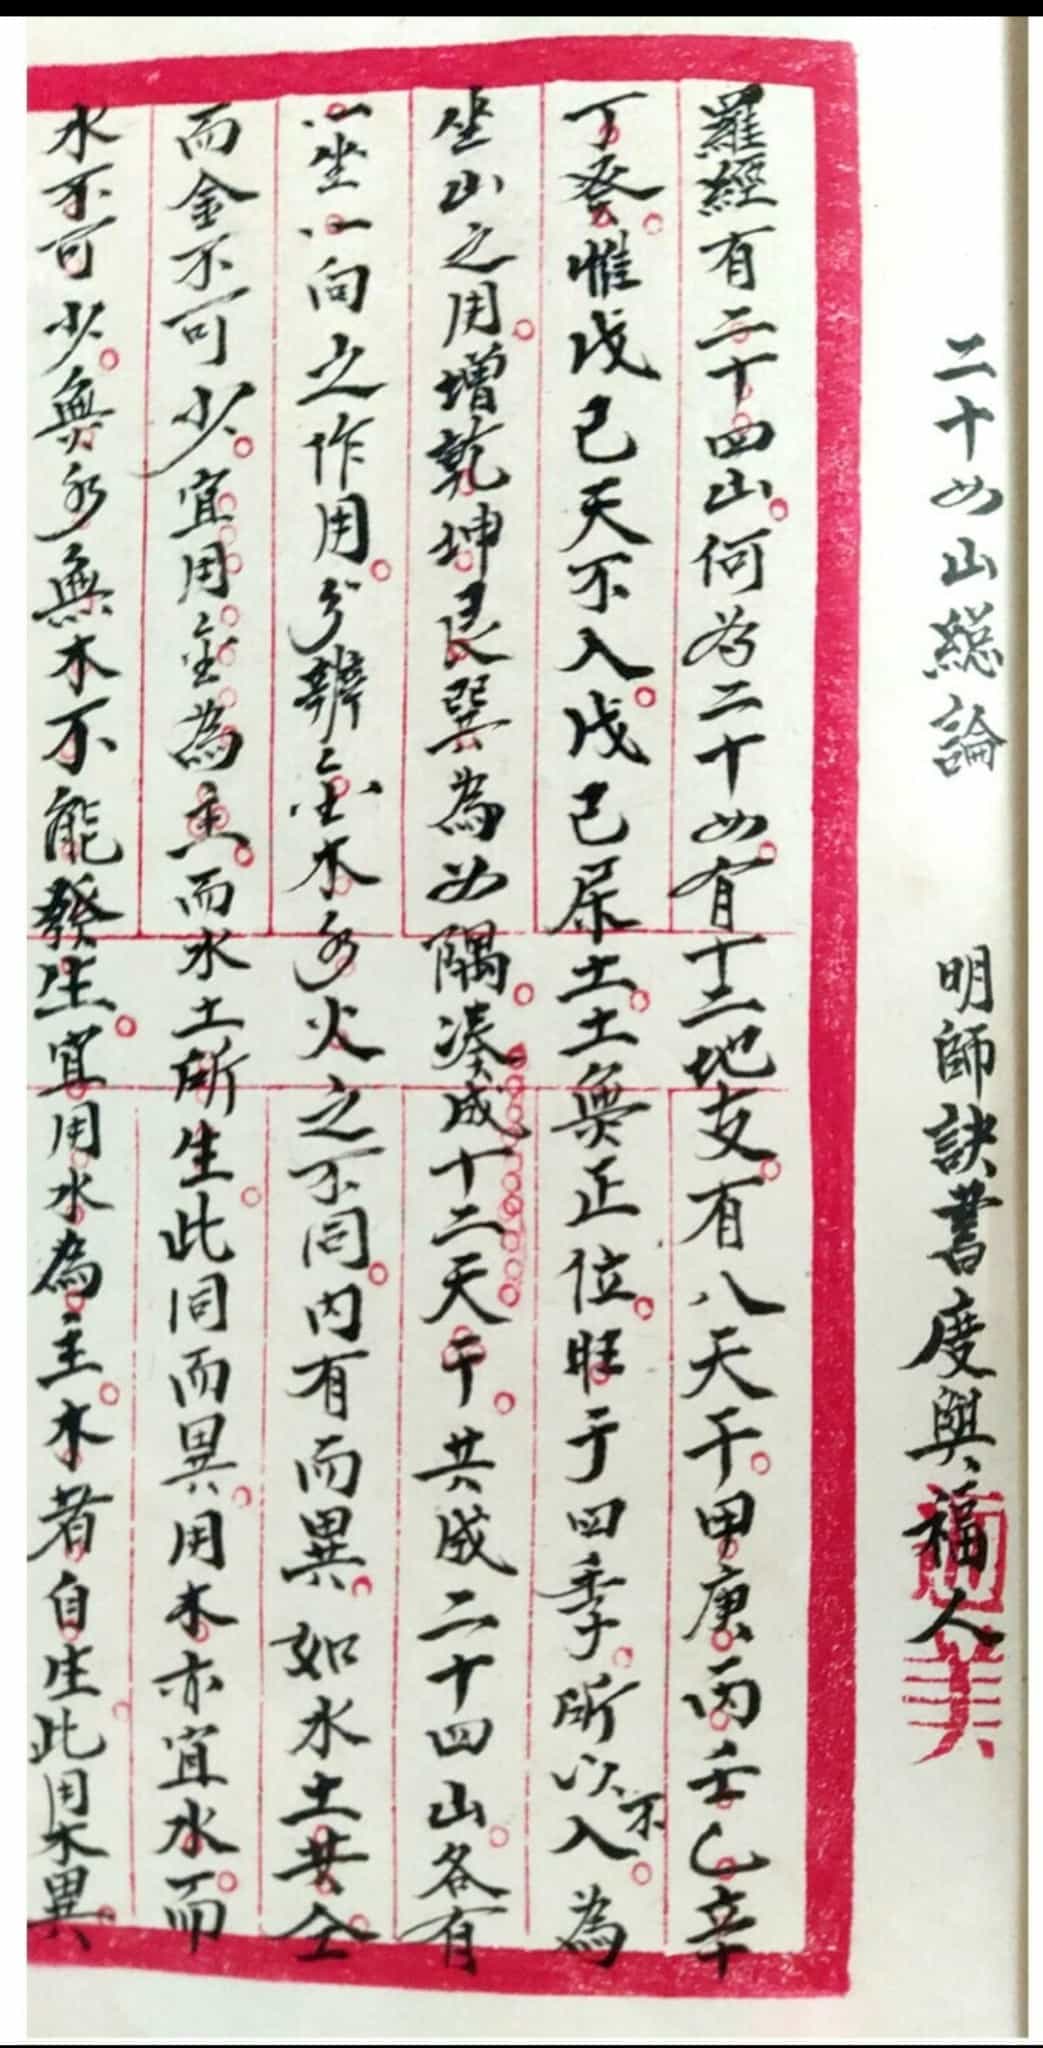 二十四山總論　明師訣書度與福人
羅經有二十四山何為二十四有十二地支有八天干甲庚丙壬乙辛
丁癸惟戊己天不入戊己屎土土無正位旺于四季所以不入為
坐山之用增乾坤艮巽為四隅湊成十二天干共成二十四山各有
坐向之作用分辨金木水火之不同內有而異如水土共仝
而金不可少宜用金為主而水土所生此同而異用木亦宜水而
水不可少無水無木不能發生宜用水為主木者自生此用木異